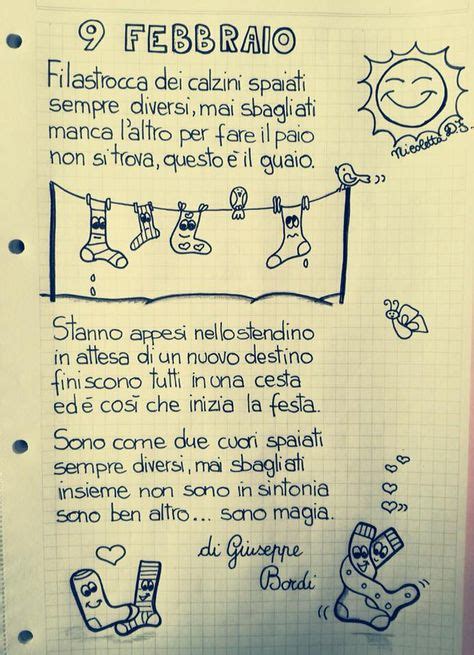 9 FEBBRAIO
Filastrocca dei calzini spaiati
sempre diversi, mai sbagliati
manca l'altro per fare il paio
non si trova, questo è il guaio.
Nicoletta D.J.
Stanno appesi nello stendino
in attesa di un nuovo destino
finiscono tutti in una cesta
ed é così che inizia la festa.
Sono come due cuori spaiati
sempre diversi, mai sbagliati
insieme non sono in sintonia
sono ben altro... sono magia.
di Giuseppe
Bordi